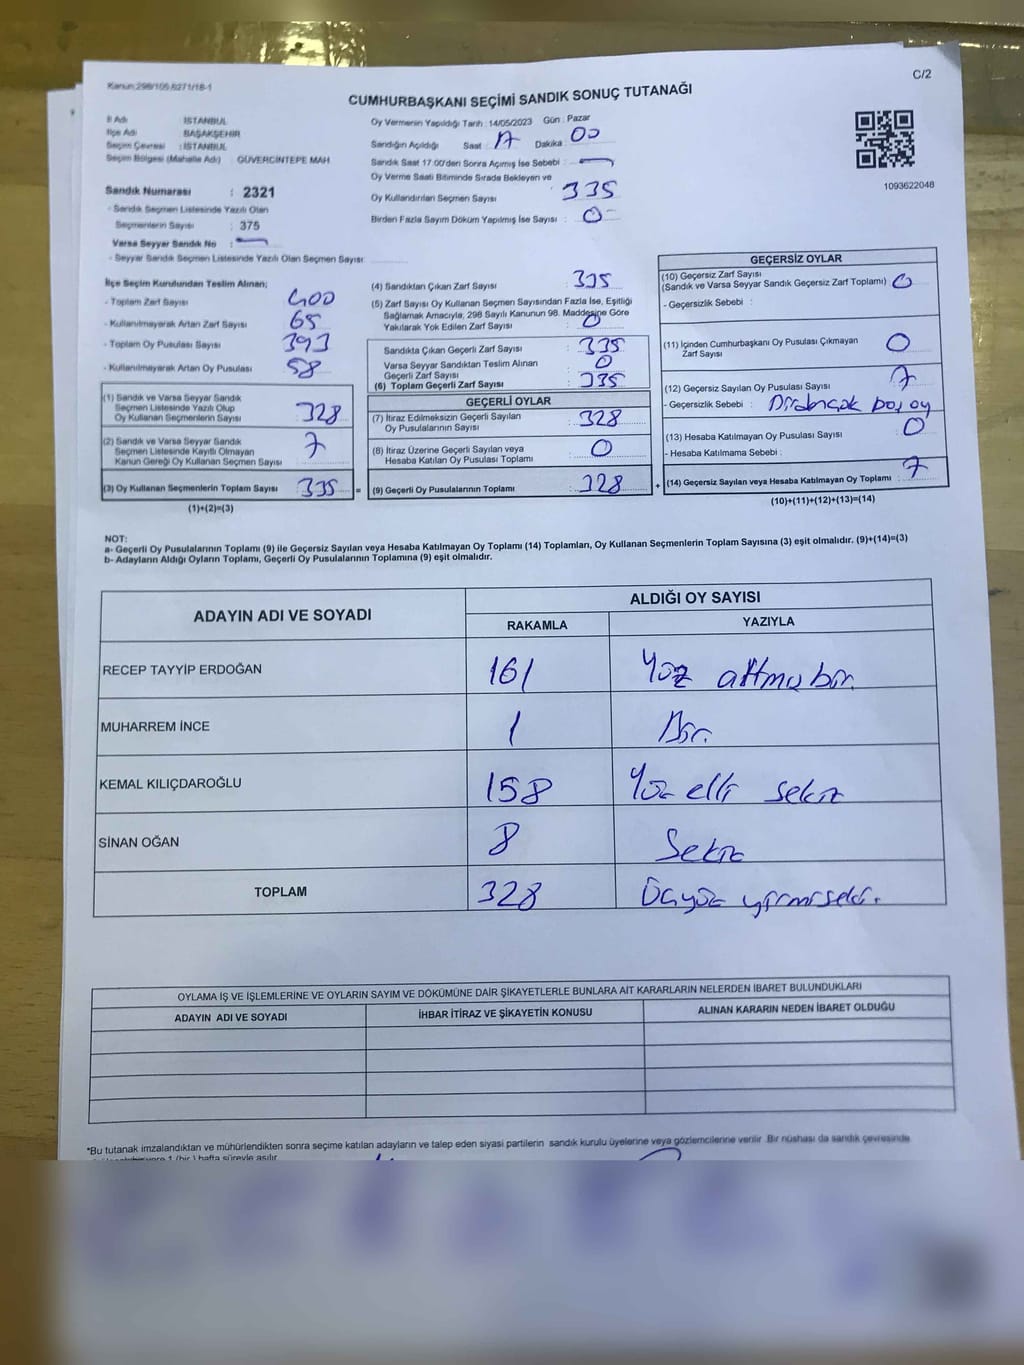 Kanun:298/105,6271/18-1
C/2
CUMHURBAŞKANI SEÇİMİ SANDIK SONUÇ TUTANAĞI
İl Adı : İSTANBUL
İlçe Adı : BAŞAKŞEHİR
Seçim Çevresi : İSTANBUL
Seçim Bölgesi (Mahalle Adı) : GÜVERCİNTEPE MAH
Sandık Numarası : 2321
- Sandık Seçmen Listesinde Yazılı Olan
Seçmenlerin Sayısı : 375
Varsa Seyyar Sandık No :
- Seyyar Sandık Seçmen Listesinde Yazılı Olan Seçmen Sayısı:
Oy Vermenin Yapıldığı Tarih : 14/05/2023 Gün : Pazar
Sandığın Açıldığı Saat : 17 Dakika : 00
Sandık Saat 17.00'den Sonra Açımış İse Sebebi :
Oy Verme Saati Bitiminde Sırada Bekleyen ve
Oy Kullandırılan Seçmen Sayısı : 335
Birden Fazla Sayım Döküm Yapılmış İse Sayısı : 0
1093622048
İlçe Seçim Kurulundan Teslim Alınan;
- Toplam Zarf Sayısı : 400
- Kullanılmayarak Artan Zarf Sayısı : 65
- Toplam Oy Pusulası Sayısı : 393
- Kullanılmayarak Artan Oy Pusulası : 58
(1) Sandık ve Varsa Seyyar Sandık
Seçmen Listesinde Yazılı Olup
Oy Kullanan Seçmenlerin Sayısı : 328
(2) Sandık ve Varsa Seyyar Sandık
Seçmen Listesinde Kayıtlı Olmayan
Kanun Gereği Oy Kullanan Seçmen Sayısı : 7
(3) Oy Kullanan Seçmenlerin Toplam Sayısı : 335 =
(1)+(2)=(3)
(4) Sandıktan Çıkan Zarf Sayısı : 335
(5) Zarf Sayısı Oy Kullanan Seçmen Sayısından Fazla İse, Eşitliği
Sağlamak Amacıyla, 298 Sayılı Kanunun 98. Maddesine Göre
Yakılarak Yok Edilen Zarf Sayısı : 0
Sandıkta Çıkan Geçerli Zarf Sayısı : 335
Varsa Seyyar Sandıktan Teslim Alınan
Geçerli Zarf Sayısı : 0
(6) Toplam Geçerli Zarf Sayısı : 335
GEÇERLİ OYLAR
(7) İtiraz Edilmeksizin Geçerli Sayılan
Oy Pusulalarının Sayısı : 328
(8) İtiraz Üzerine Geçerli Sayılan veya
Hesaba Katılan Oy Pusulası Toplamı : 0
(9) Geçerli Oy Pusulalarının Toplamı : 328 +
GEÇERSİZ OYLAR
(10) Geçersiz Zarf Sayısı
(Sandık ve Varsa Seyyar Sandık Geçersiz Zarf Toplamı) : 0
- Geçersizlik Sebebi :
(11) İçinden Cumhurbaşkanı Oy Pusulası Çıkmayan
Zarf Sayısı : 0
(12) Geçersiz Sayılan Oy Pusulası Sayısı : 7
- Geçersizlik Sebebi : boş oy
(13) Hesaba Katılmayan Oy Pusulası Sayısı : 0
- Hesaba Katılmama Sebebi :
(14) Geçersiz Sayılan veya Hesaba Katılmayan Oy Toplamı : 7
(10)+(11)+(12)+(13)=(14)
NOT:
a- Geçerli Oy Pusulalarının Toplamı (9) ile Geçersiz Sayılan veya Hesaba Katılmayan Oy Toplamı (14) Toplamları, Oy Kullanan Seçmenlerin Toplam Sayısına (3) eşit olmalıdır. (9)+(14)=(3)
b- Adayların Aldığı Oyların Toplamı, Geçerli Oy Pusulalarının Toplamına (9) eşit olmalıdır.
ADAYIN ADI VE SOYADI ALDIĞI OY SAYISI
RAKAMLA YAZIYLA
RECEP TAYYİP ERDOĞAN 161 Yüz altmış bir
MUHARREM İNCE 1 Bir
KEMAL KILIÇDAROĞLU 158 Yüz elli sekiz
SİNAN OĞAN 8 Sekiz
TOPLAM 328 Üçyüz yirmisekiz
OYLAMA İŞ VE İŞLEMLERİNE VE OYLARIN SAYIM VE DÖKÜMÜNE DAİR ŞİKAYETLERLE BUNLARA AİT KARARLARIN NELERDEN İBARET BULUNDUKLARI
ADAYIN ADI VE SOYADI İHBAR İTİRAZ VE ŞİKAYETİN KONUSU ALINAN KARARIN NEDEN İBARET OLDUĞU
*Bu tutanak imzalandıktan ve mühürlendikten sonra seçime katılan adayların ve talep eden siyasi partilerin sandık kurulu üyelerine veya gözlemcilerine verilir. Bir nüshası da sandık çevresinde
1 (bir ) hafta süreyle asılır.